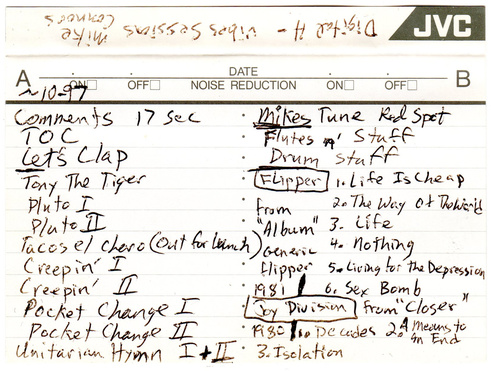 Digital H - Vibes Sessions
Mike
Connors
JVC
A
DATE
B
ON
OFF
NOISE REDUCTION
ON
OFF
~10-97
Comments 17 sec
TOC
Let's Clap
Tony The Tiger
Pluto I
Pluto II
Tacos el charo (out for Launch)
Creepin' I
Creepin' II
Pocket Change I
Pocket Change II
Unitarian Hymn I + II
Mikes Tune Red Spot
Flutes n' Stuff
Drum Stuff
Flipper 1. Life Is Cheap
from 2. The Way Of The World
"Album" 3. Life
Generic 4. Nothing
Flipper 5. Living for the Depression
1981 6. Sex Bomb
Joy Division From "Closer"
1980 1. Decades 2. A Means to an End
3. Isolation